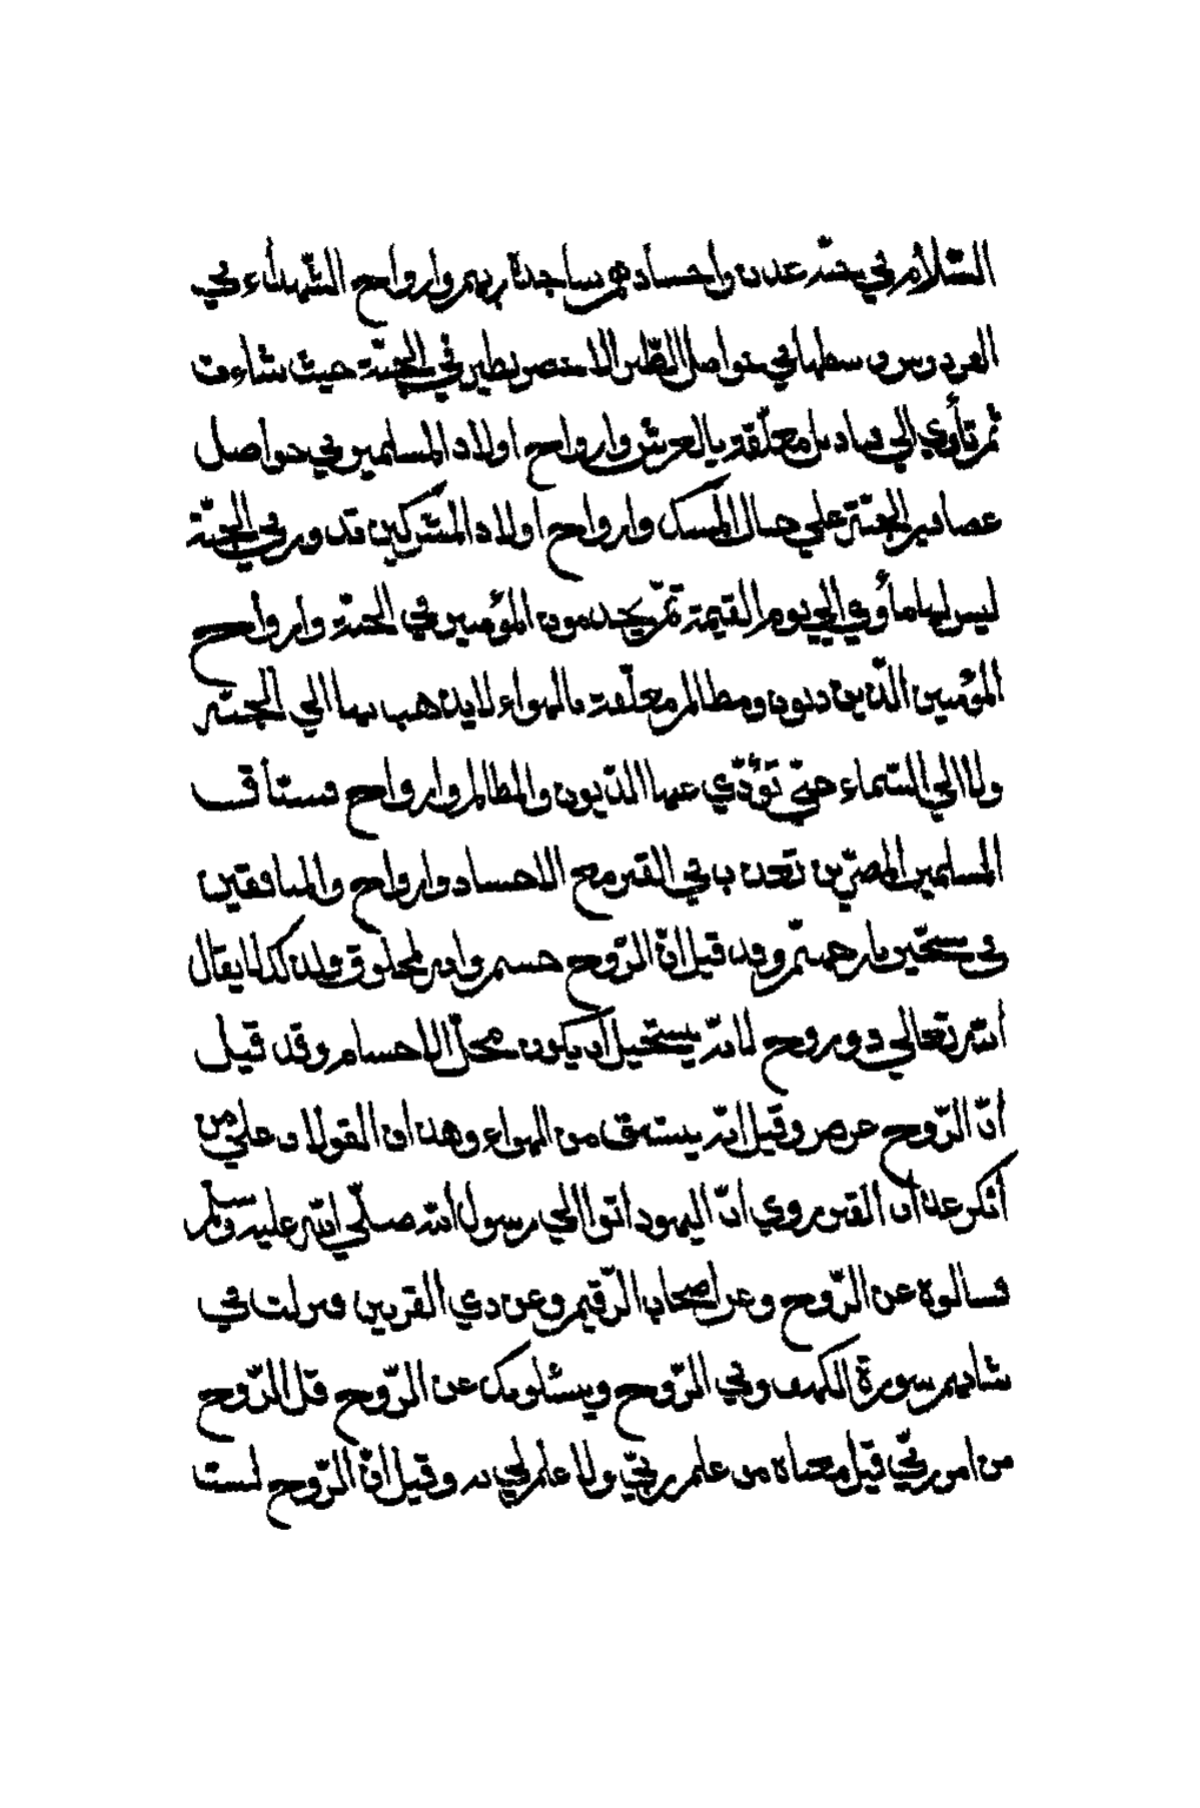 السّلام في جنّة عدن واجسادهم ساجدة لربهم وارواح الشّهداء في
الفردوس وسطها في حواصل الطّير الاخضر يطير في الجنّة حيث شاءت
ثم تأوي الي قناديل معلّقة بالعرش وارواح اولاد المسلمين في حواصل
عصافير الجنّة علي جبال المسك وارواح اولاد المشركين تدور في الجنّة
ليس لها مأوي الي يوم القيمة ثمّ يخدمون المؤمنين في الجنّة وارواح
المؤمنين الّذين ديون ومظالم معلّقة بالهواء لا يذهب بها الي الجنّة
ولا الي السّماء حتّي تؤدّي عنها الدّيون والمظالم وارواح فسّاق
المسلمين المصرّين تعذب في القبر مع الاجساد وارواح والمنافقين
في سجّين نار جهنّم وقد قيل انّ الرّوح جسم وانه لمخلوق ولذلك لا يقال
انّه تعالي ذو روح لانّه يستحيل ان يكون محلّ الاجسام وقد قيل
انّ الرّوح عرض وقيل انّه ينشق من الهواء وهذان القولان علي من
انكر عذاب القبر روي انّ اليهود أتوا الي رسول الله صلّي الله عليه وسلّم
فسالوه عن الرّوح وعن اصحاب الرّقيم وعن ذي القرنين فنزلت في
شانهم سورة الكهف وفي الرّوح ويسئلونك عن الرّوح قل الرّوح
من امر ربّي قيل معناه من علم ربّي ولا علم لي به وقيل انّ الرّوح ليست